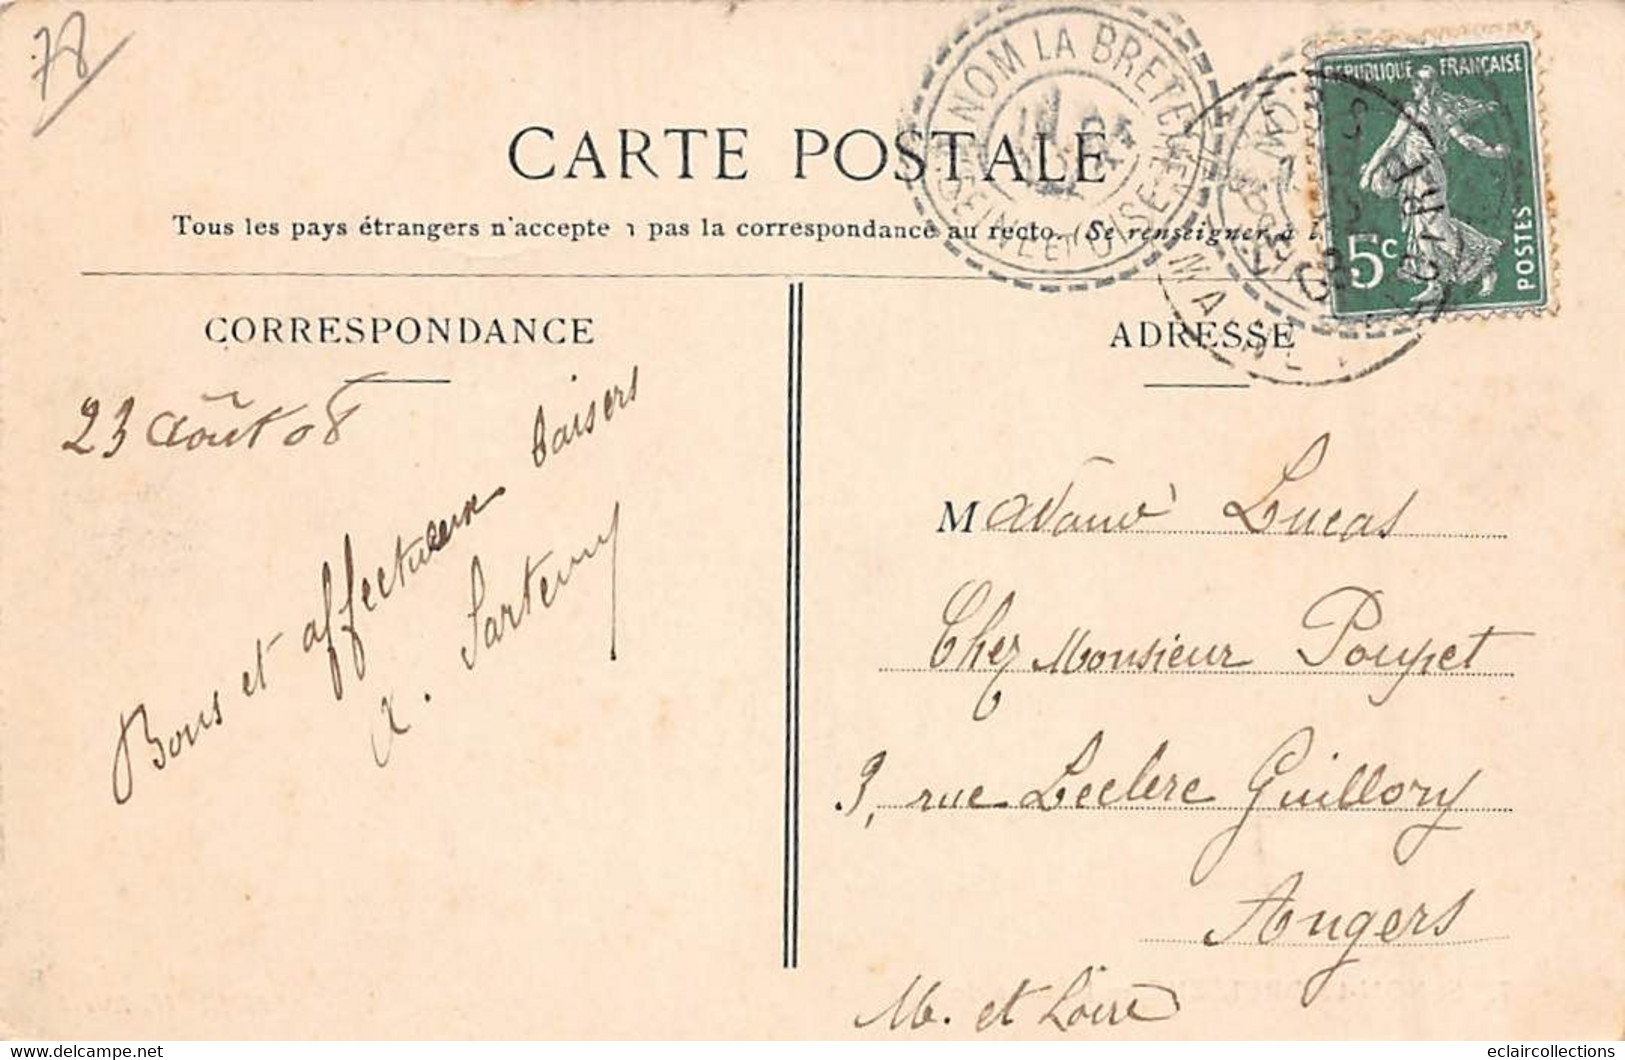 78
CARTE POSTALE
NOM LA BRETE
SEINE ET OISE
REPUBLIQUE FRANÇAISE
5c
POSTES
Tous les pays étrangers n'accepte pas la correspondance au recto. (Se renseigner à l
CORRESPONDANCE
ADRESSE
23 Août 08
Bons et affectueux baisers
Madame Lucas
Chez Monsieur Poupet
3, rue Leclerc Guillory
Angers
M. et Loire
eclaircollections